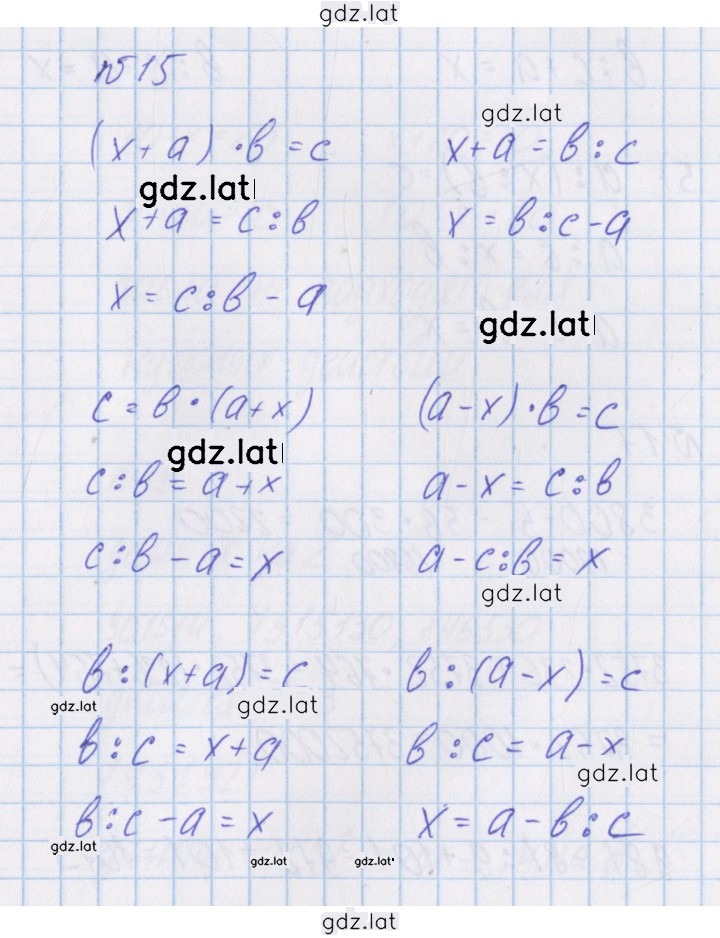 gdz.lat
№15
(x+a)·в=c
gdz.lat
x+a=в:c
gdz.lat
x+a=c:в
x=в:c-a
x=c:в-a
gdz.lat
c=в·(a+x)
(a-x)·в=c
gdz.lat
c:в=a+x
a-x=c:в
c:в-a=x
a-c:в=x
gdz.lat
в:(x+a)=c
в:(a-x)=c
gdz.lat
gdz.lat
в:c=x+a
в:c=a-x
gdz.lat
в:c-a=x
x=a-в:c
gdz.lat
gdz.lat
gdz.lat
gdz.lat